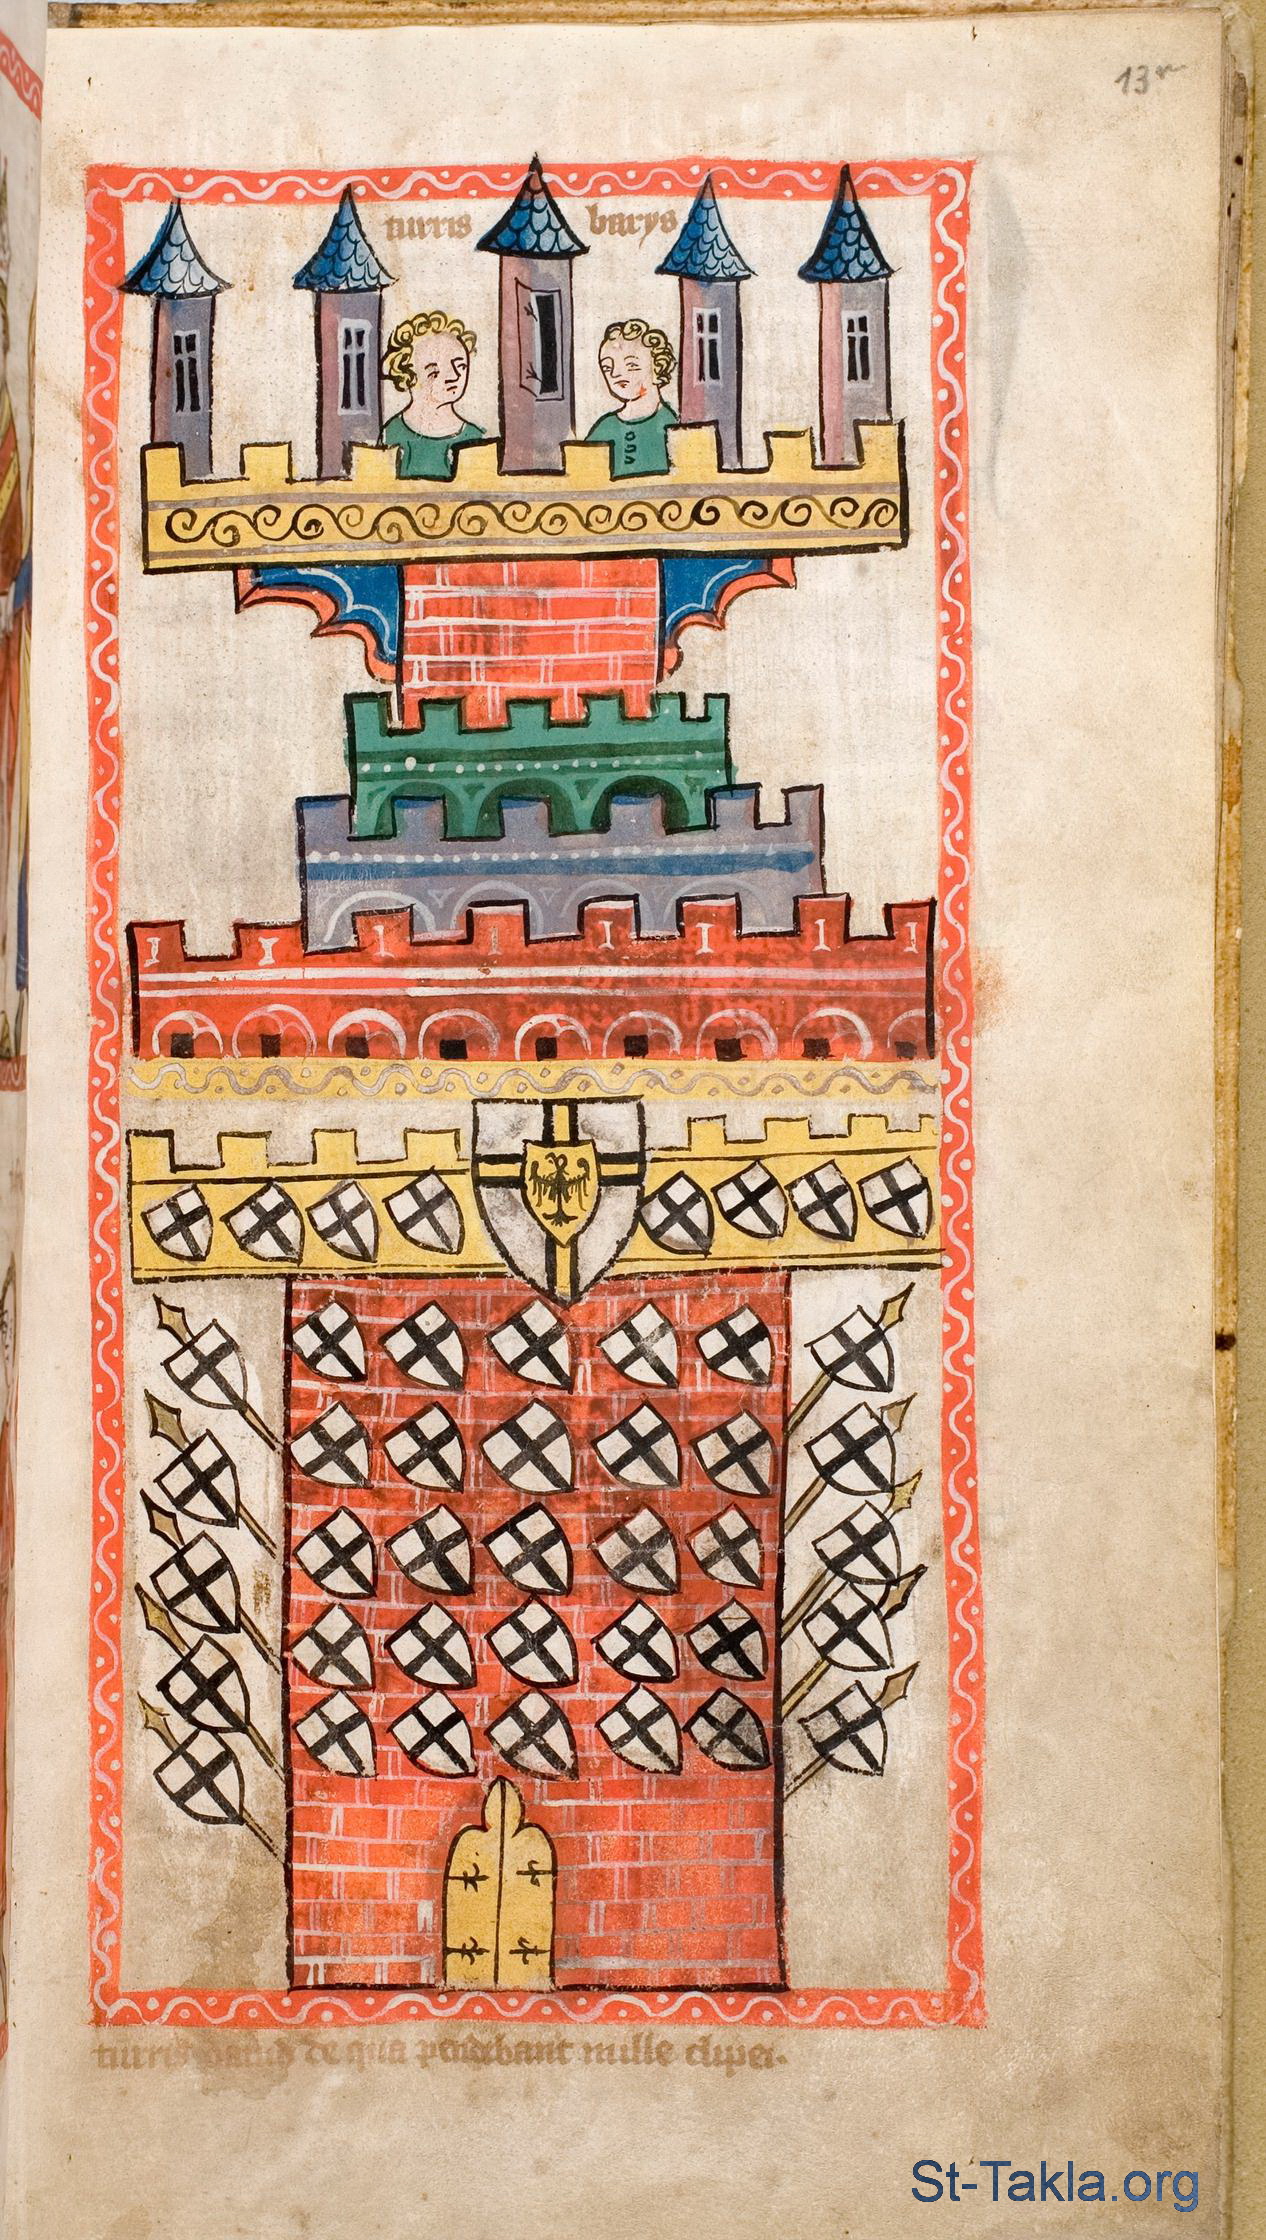 13r
turris barys
turris dauid de qua pendebant mille clipei.
St-Takla.org